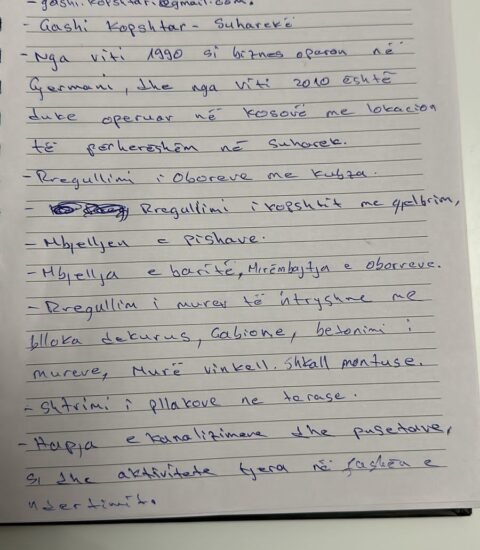 - gashi.kopshtar.@gmail.com.
- Gashi Kopshtar - Suharekë
- Nga viti 1990 si biznes operon në
Germani, dhe nga viti 2010 është
duke operuar në Kosovë me lokacion
të përhershëm në Suharek.
- Rregullimi i Oboreve me kubza.
- Rregullimi i kopshtit me gjelbrim,
- Mbjelljen e pishave.
- Mbjellja e barit, Mirëmbajtja e oborreve.
- Rregullim i mureve të ntryshme me
blloka dekurus, Gabione, betonimi i
mureve, Murë vinkell. Shkall montuse.
- Shtrimi i pllakove ne terase.
- Hapja e kanalizimeve dhe pusetave,
si dhe aktivitete tjera në fashën e
ndertimit.